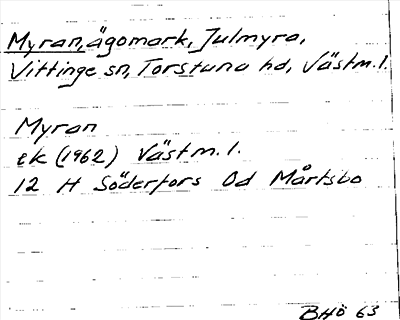 Myran, ägomark, Julmyra,
Vittinge sn, Torstuna hd, Västm. l.
Myran
ek (1962) Västm. l.
12 H Söderfors 0d Mårtsbo
BHö 63